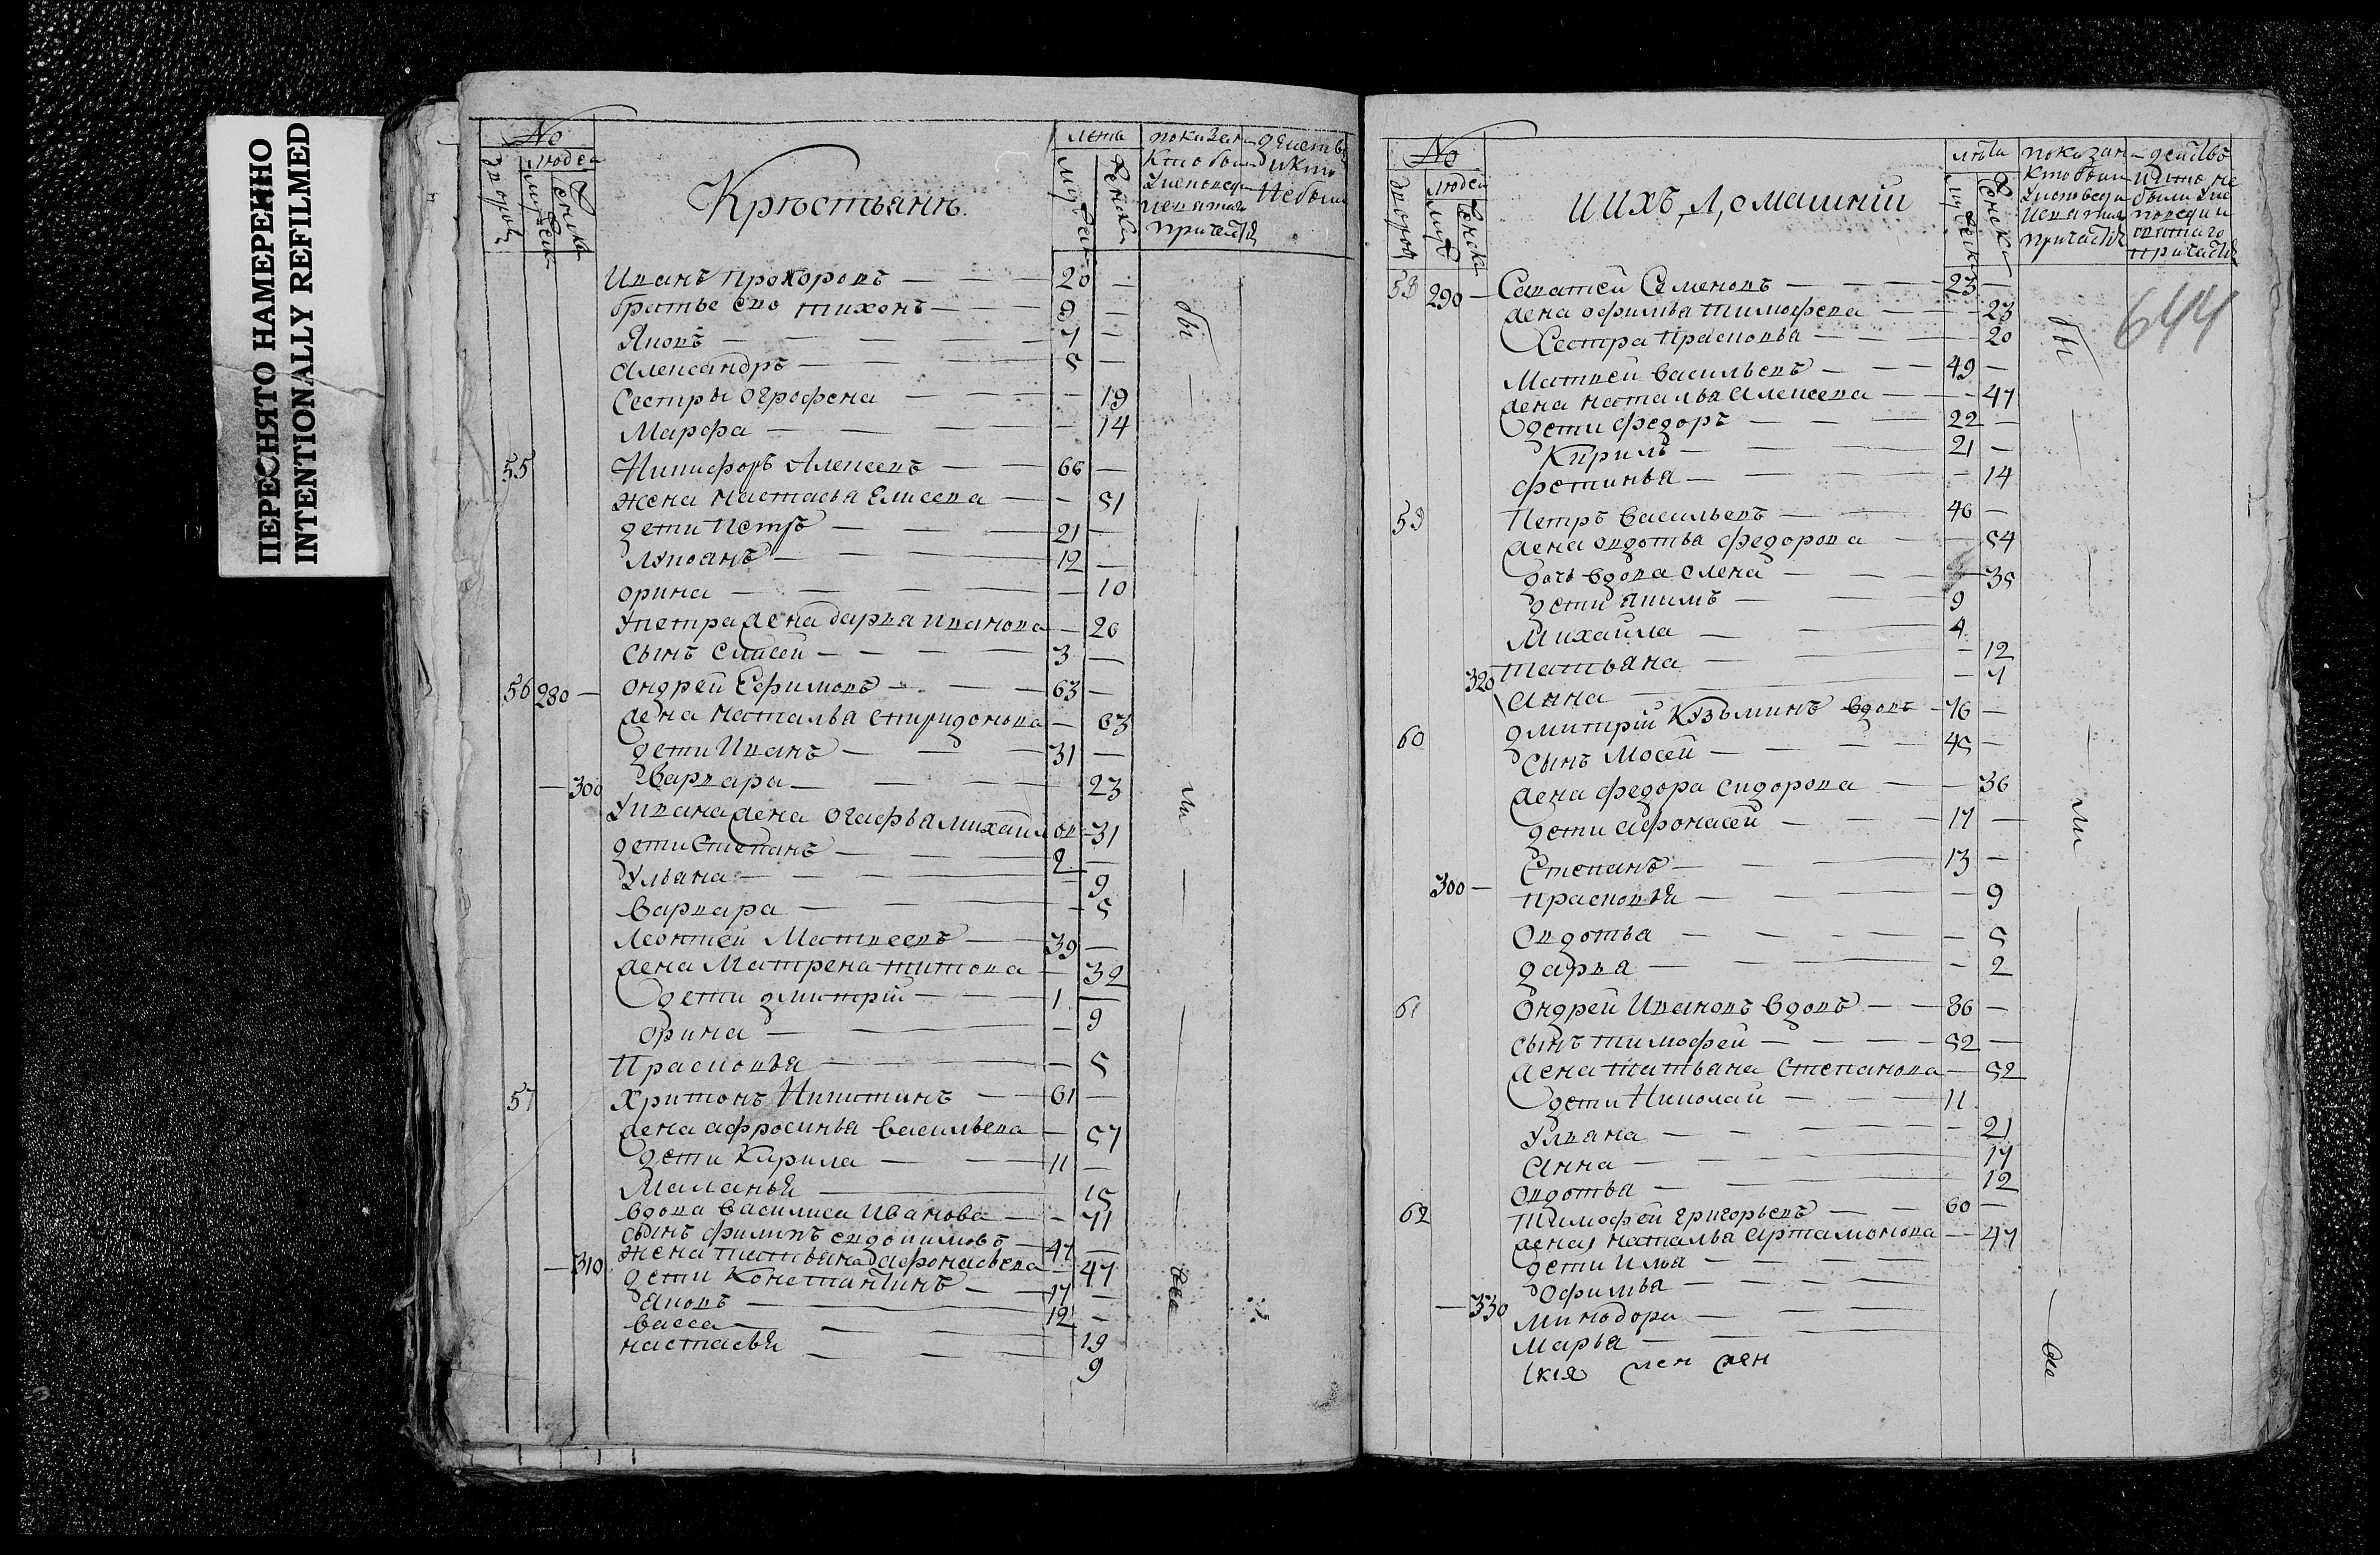 ПЕРЕСНЯТО НАМЕРЕННО
INTENTIONALLY REFILMED
№
дворовъ
людей
мужеск
женска
Крѣстьянѣ.
лета
мужеск
женска
показан
Кто были
Уисповед
исвятаг
причастія
действ
и кто
Не были
Иванъ прохоровъ — 20 —
братье ево тихонъ — 9 —
Яковъ — 7 —
Александръ — 5 —
Сестры Огрофена — 19
Марфа — 14
55 Никифоръ Алексевъ — 66 —
жена настасья Елисева — 51
дети петръ — 21 —
Лукоанъ — 12 —
орина — 10
Упетра жена дарья иванова — 20
сынъ елисей — 3 —
56 280 — ондрей Ефимовъ — 63 —
жена наталья спиридонова — 63
дети Иванъ — 31 —
— 300 Варвара — 23
Уивана жена огафья михаилов — 31
дети Степанъ — 2 —
Ульяна — 9
варвара — 5
Леонтей Матвеевъ — 39 —
жена Матрена титова — 32
дети дмитрій — 1 —
орина — 9
Прасковья — 5
57 Харитонъ Никитинъ — 61 —
жена афросинья васильева — 57
дети Кирила — 11 —
Маланья — 15
вдова василиса Иванова — 71
сынъ филипъ евдокимовъ — 47 —
— 310 жена татьяна афонасьева — 47
дети Константинъ — 17 —
Яковъ — 12 —
васса — 19
настасья — 9
бы
ли
все
№
дворовъ
людей
муж
женска
ИИХЪ, Д, омашніи
лѣта
мужеск
женска
показан
кто были
Уисповеди
исвятаг
причастія
действо
и кто не
были Уис
поведи и
святаго
причастія
644
58 290 — Саватей Семеновъ — 23 —
жена офимья тимофева — 23
Сестра прасковья — 20
Матвей васильевъ — 49 —
жена наталья алексева — 47
дети федоръ — 22 —
Кирилъ — 21 —
фетинья — 14
59 Петръ васильевъ — 46 —
жена овдотья федорова — 54
дочь вдова олена — 35
дети якимъ — 9
Михайла — 4
320 татьяна — 12
Анна — 7
60 дмитрій Кузьминъ вдовъ — 76 —
сынъ Мосей — 45 —
жена федора сидорова — 36
дети афонасей — 17 —
Степанъ — 13 —
300 — прасковья — 9
Овдотья — 5
дарья — 2
61 Ондрей Ивановъ вдовъ — 86 —
сынъ тимофей — 52 —
жена татьяна Степанова — 52
дети Николай — 11
Ульяна — 21
Анна — 17
овдотья — 12
62 тимофей григорьевъ — 60 —
жена наталья артамонова — 47
дети Илья —
офимья —
— 330 минодора —
марья —
бы
ли
все